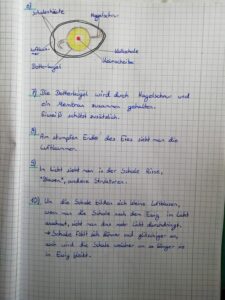 Schalenhäute
Hagelschnur
Luftkam-
Kalkschale
Keimscheibe
Dotterkugel
7) Die Dotterkugel wird durch Hagelschnur und
ein Membran zusammen gehalten.
Eiweiß schützt zusätzlich.
8) Am stumpfen Ende des Eies sieht man die
Luftkammer.
9) Im Licht sieht man in der Schale Risse,
andere Strukturen.
10) Um die Schale bilden sich kleine Luftblasen,
wenn man die Schale nach dem Essig im Licht
anschaut, sieht man das mehr Licht durchdringt.
→ Schale fühlt sich dünner und glitschiger an,
sein wird die Schale weicher um so länger sie
im Essig bleibt.